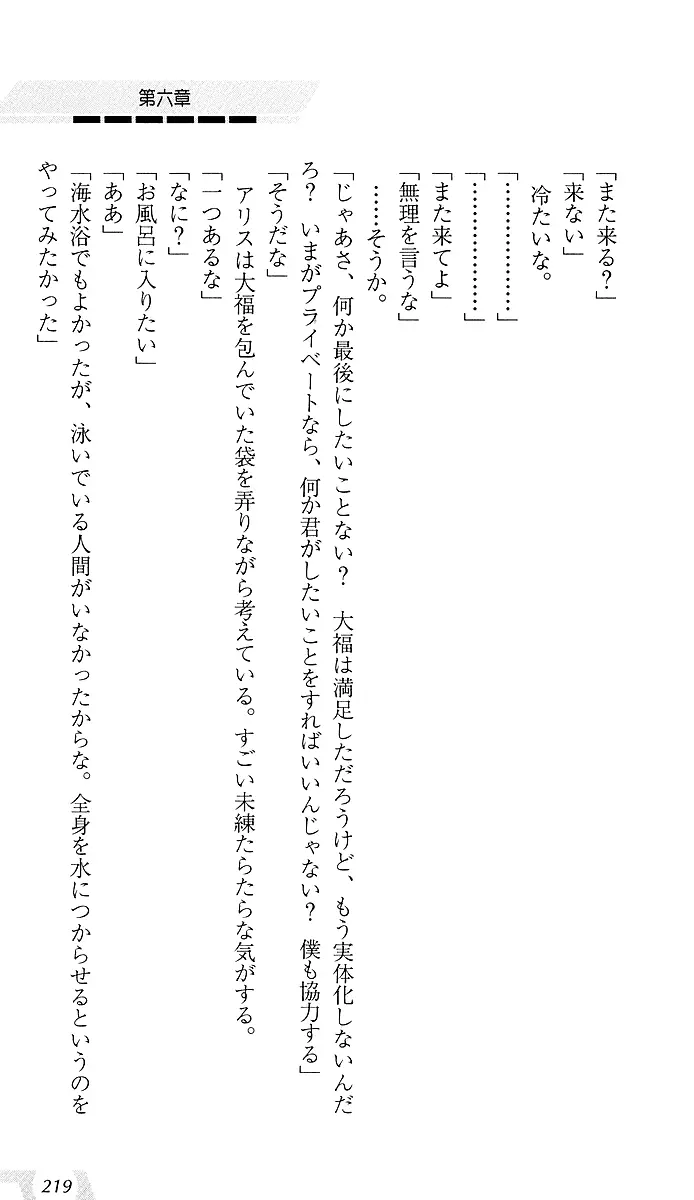 第六章
「また来る？」
「来ない」
　冷たいな。
「………………」
「………………」
「また来てよ」
「無理を言うな」
　……そうか。
「じゃあさ、何か最後にしたいことない？　大福は満足しただろうけど、もう実体化しないんだ
ろ？　いまがプライベートなら、何か君がしたいことをすればいいんじゃない？　僕も協力する」
「そうだな」
　アリスは大福を包んでいた袋を弄りながら考えている。すごい未練たらたらな気がする。
「一つあるな」
「なに？」
「お風呂に入りたい」
「ああ」
「海水浴でもよかったが、泳いでいる人間がいなかったからな。全身を水につからせるというのを
やってみたかった」
219